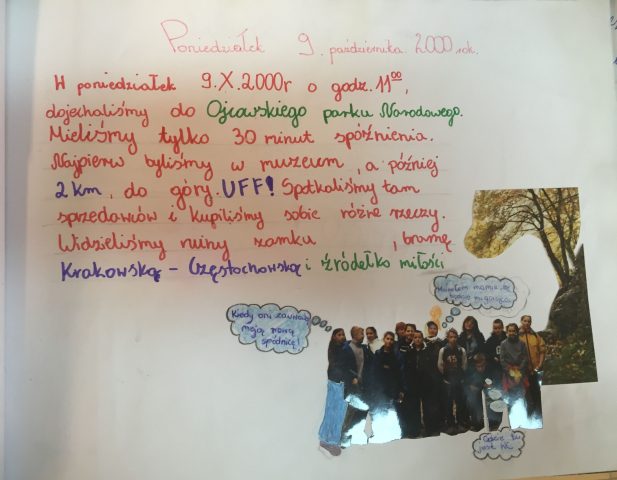 Poniedziałek 9. października. 2000 rok.
H poniedziałek 9.X.2000r o godz. 11⁰⁰,
dojechaliśmy do Ojcowskiego parku Narodowego.
Mieliśmy tylko 30 minut spóźnienia.
Najpierw byliśmy w muzeum, a później
2 km, do góry. UFF! Spotkaliśmy tam
sprzedawców i kupiliśmy sobie różne rzeczy.
Widzieliśmy ruiny zamku , bramę
Krakowską - Częstochowską i źródełko miłości
Kiedy oni zauważą
moją nową
spódnicę!
mamie, że
będzie
Gdzie tu
jest WC